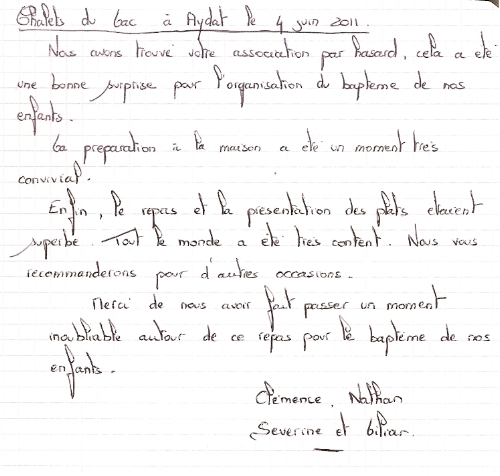 Chalets du lac à Aydat le 4 juin 2011.
Nous avons trouvé votre association par hasard, cela a été
une bonne surprise pour l'organisation du baptème de nos
enfants.
La preparation à la maison a été un moment très
convivial.
Enfin, le repas et la présentation des plats etaient
superbe. Tout le monde a été très content. Nous vous
recommanderons pour d'autres occasions.
Merci de nous avoir fait passer un moment
inoubliable autour de ce repas pour le baptème de nos
enfants.
Clémence, Nathan
Severine et